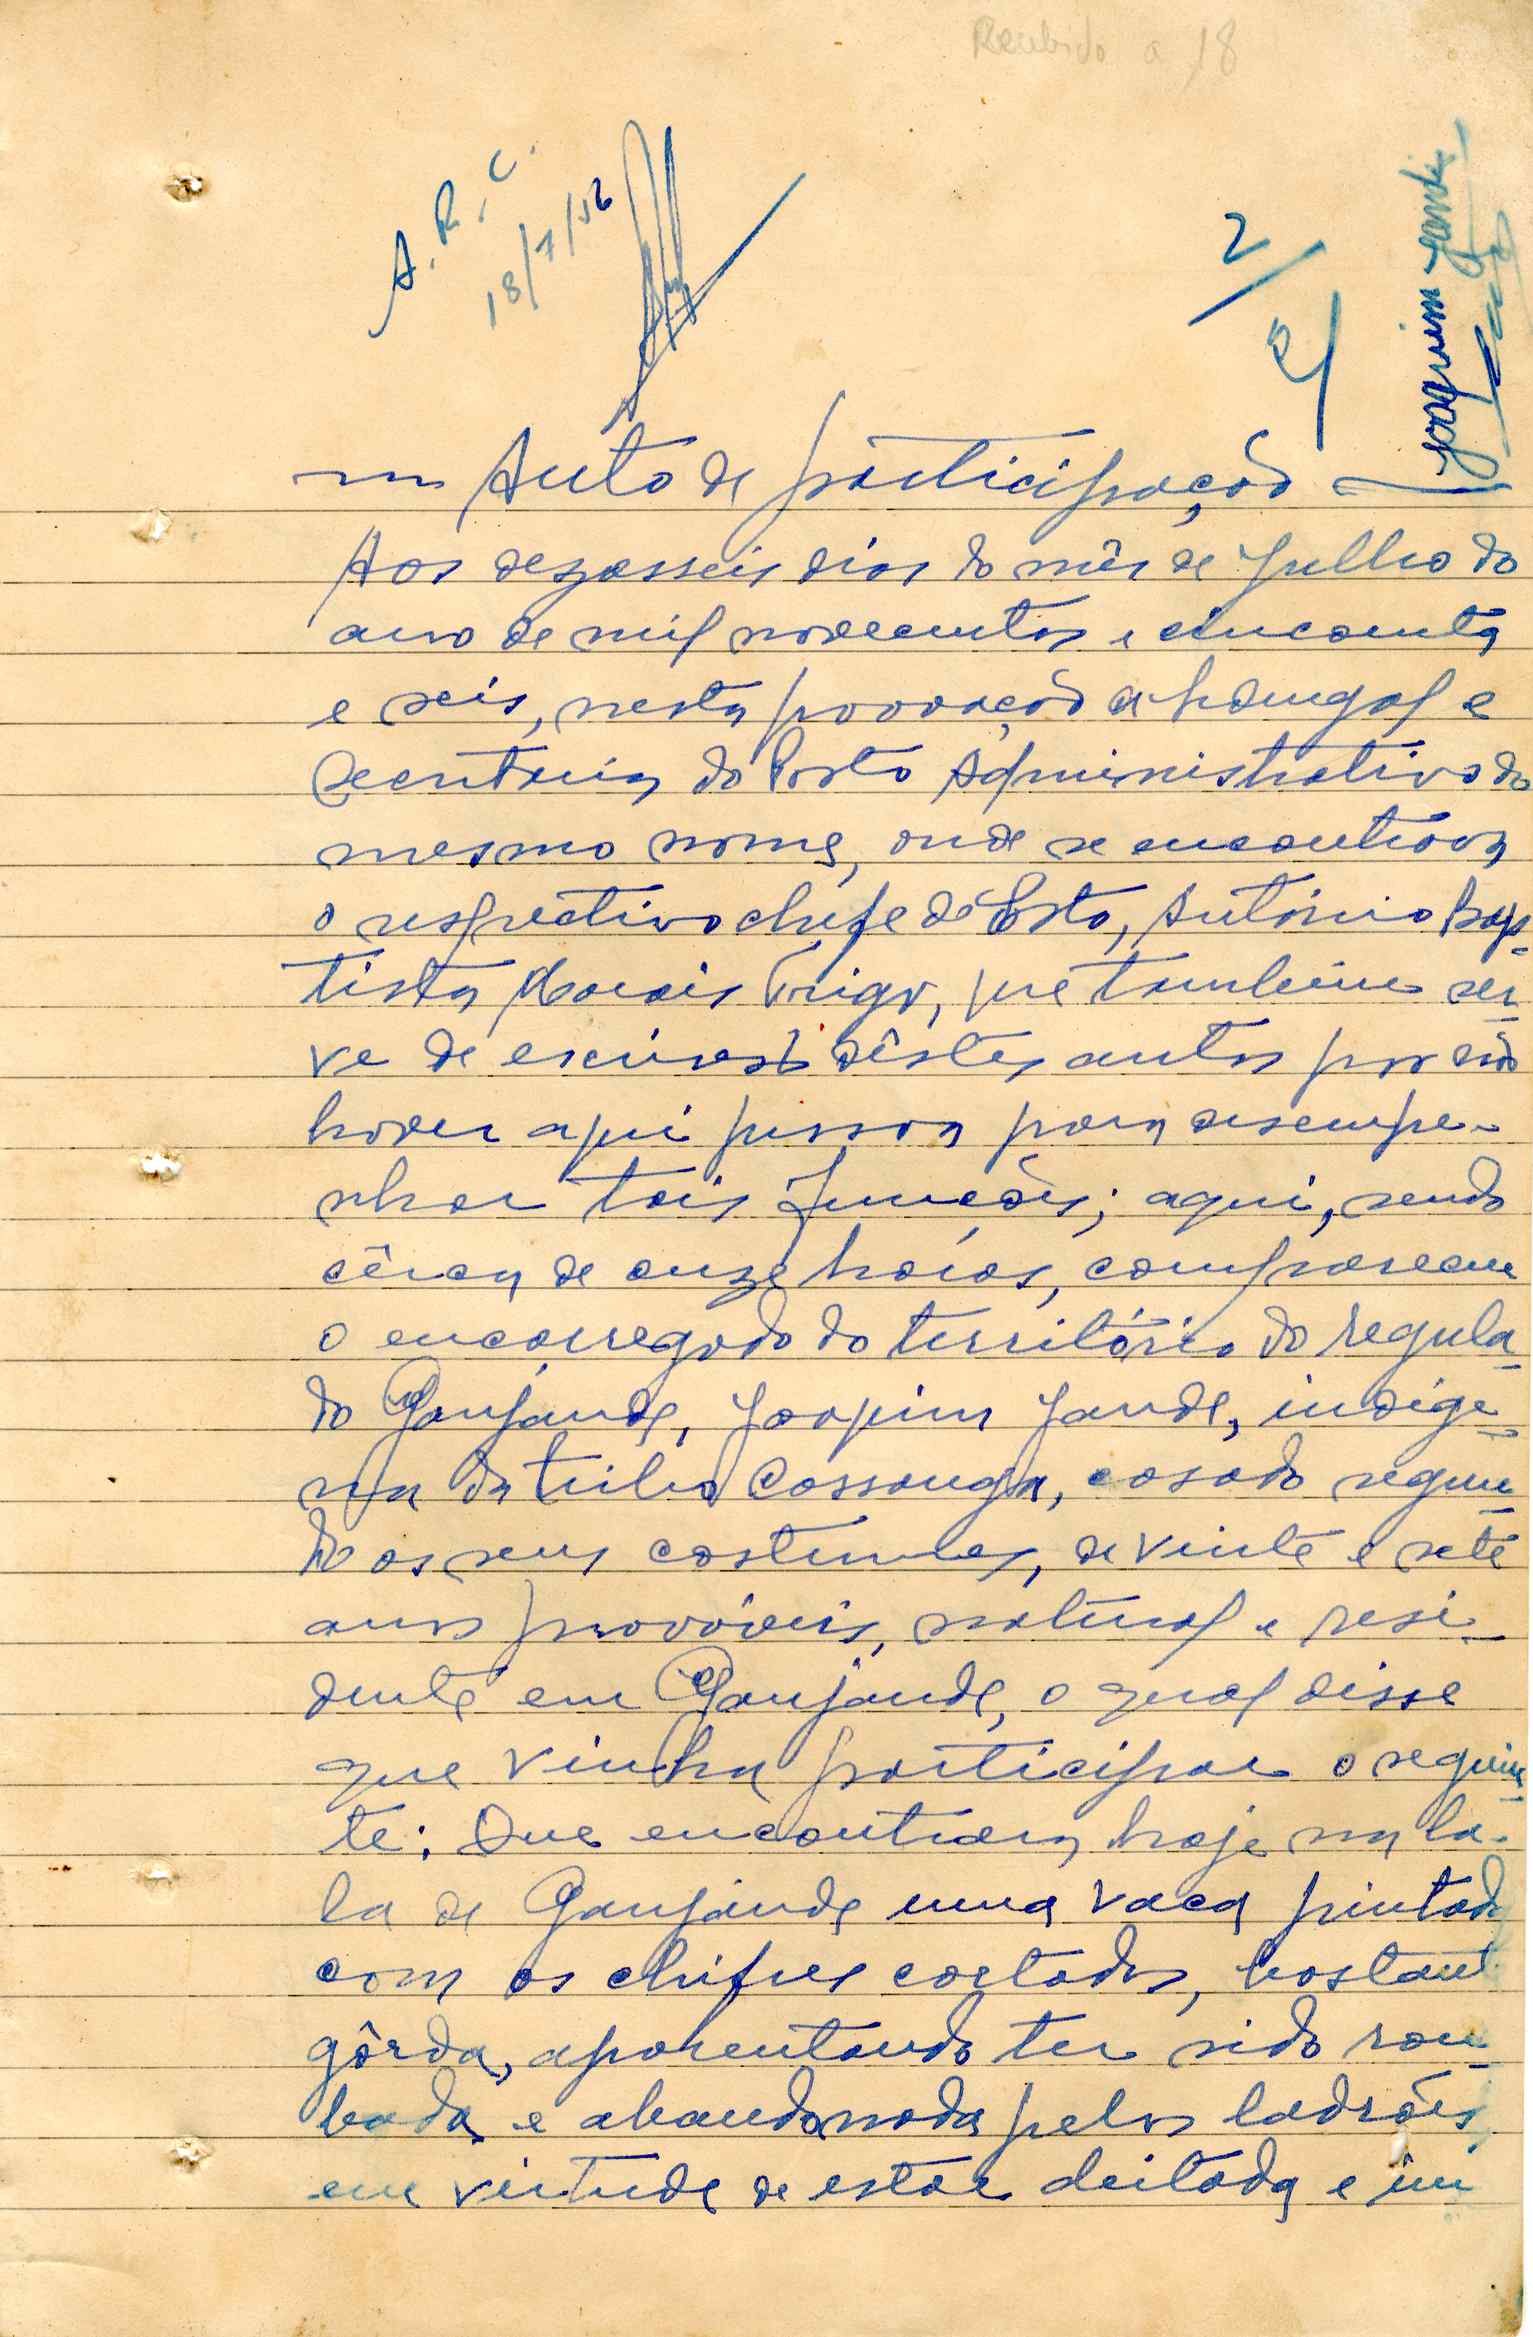 Recebido a 18
A. R. C.
18/7/56
2
Joaquim Jandi
Auto de participação
Aos dezasseis dias do mês de Julho do
ano de mil novecentos e cincoenta
e seis, nesta povoação de Mungal e
Secretaria do Posto Administrativo do
mesmo nome, onde se encontrava
o respectivo chefe de Posto, António Bap-
tista Morais Trigo, que tambéem ser-
ve de escrivão dêstes autos por não
haver aqui pessoa para desempe-
nhar tais funções; aqui, sendo
cêrca de onze horas, compareceu
o encarregado do território do regula-
do Ganjande, Joaquim Jande, indige-
na da tribo Cassanga, casado segun-
do os seus costumes, de vinte e sete
anos prováveis, natural e resi-
dente em Ganjande, o qual disse
que vinha participar o seguin-
te: Que encontrara hoje na la-
la de Ganjande uma vaca pintada
com os chifres cortados, bastante
gôrda, aparentando ter sido rou-
bada e abandonada pelos ladrões,
em virtude de estar deitada e im